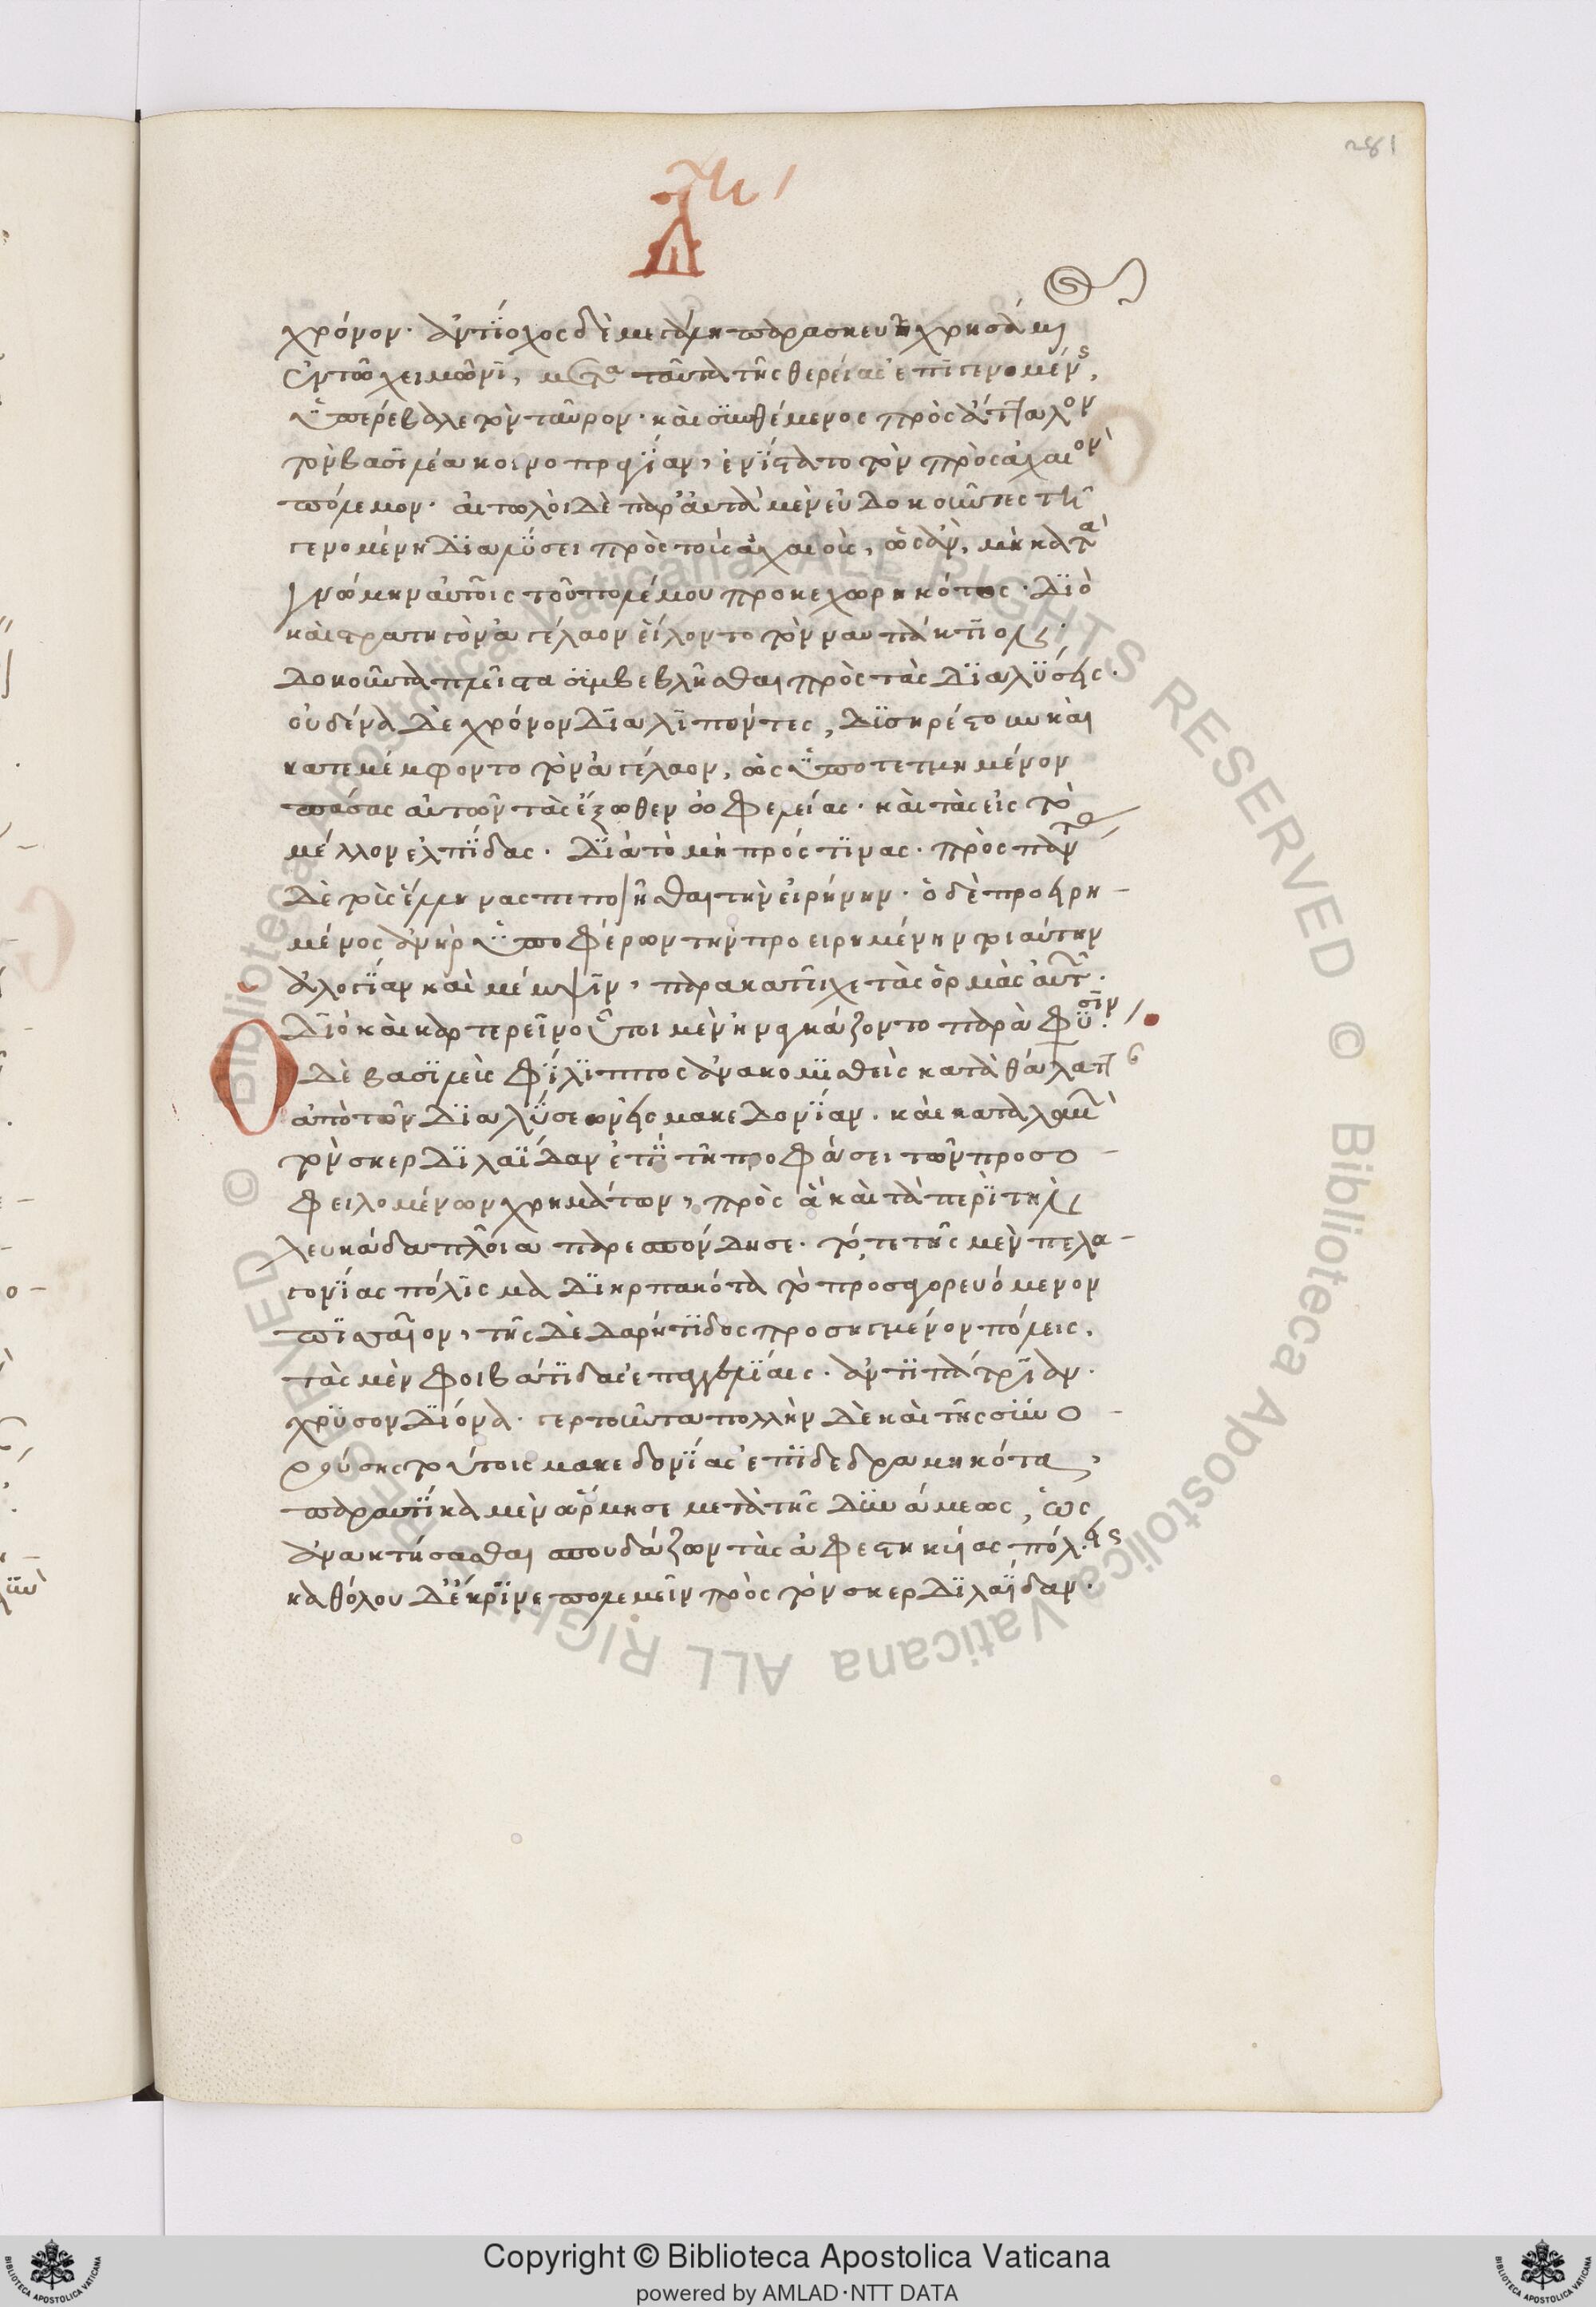 281
χρόνον· ἀντίοχος δὲ μεγάλη παρασκευῆ χρησάμ
ἐν τῶ χειμῶνι, μετα ταῦτα τῆς θερείας ἐπιγενομένς,
ὑπερέβαλε τὸν ταῦρον· καὶ συνθέμενος πρὸς ἄτταλον
τὸν βασιλέα κοινοπραγίαν, ἐνίστατο τὸν πρὸς ἀχαιὸν
πόλεμον· αἰτωλοὶ δὲ παρ' αὐτὰ μὲν εὐδοκοῦντες τῆ
γενομένη διαλύσει πρὸς τοὺς ἀχαιοὺς, ὡς ἂν, μὴ κατὰ
γνώμην αὐτοῖς τοῦ πολέμου προκεχωρηκότος· διὸ
καὶ στρατηγὸν ἀγέλαον εἵλοντο τὸν ναυπάκτιον·
δοκοῦντα πλεῖστα συμβεβλῆσθαι πρὸς τὰς διαλύσεις·
οὐδένα δὲ χρόνον διαλιπόντες, δυσηρέστουν καὶ
κατεμέμφοντο τὸν ἀγέλαον, ὡς ὑποτετμημένον
πάσας αὐτῶν τὰς ἔξωθεν ὠφελείας· καὶ τὰς εἰς τὸ
μέλλον ἐλπίδας· διὰ τὸ μὴ πρός τινας· πρὸς πάντ
δὲ τοὺς ἕλληνας πεποιῆσθαι τὴν εἰρήνην· ὁ δὲ προειρη-
μένος ἀνὴρ ὑποφέρων τὴν προειρημένην τοιαύτην
ἀλογίαν καὶ μέμψιν, παρακατεῖχε τὰς ὁρμὰς αὐτ·
διὸ καὶ καρτερεῖν οὗτοι μὲν ἠναγκάζοντο παρὰ φύσιν·
Ο δὲ βασιλεὺς φίλιππος ἀνακομισθεὶς κατὰ θάλατ
ἀπὸ τῶν διαλύσεων εἰς μακεδονίαν· καὶ καταλαμ
τὸν σκερδιλαΐδαν ἐπὶ τῆ προφάσει τῶν προσο-
φειλομένων χρημάτων, πρὸς ἃ καὶ τὰ περὶ τὴν
λευκάδα πλοῖα παρεσπόνδησε· τό,τε τῆς μὲν πελα-
γονίας πόλισμα διηρπακότα τὸ προσαγορευόμενον
πισσαῖον, τῆς δὲ δαρήτιδος προσηγμένον πόλεις,
τὰς μὲν φοιβάτιδας ἐπαγγελίαις· ἀντιπάτρίαν·
χρυσονδιόνα· γερτοῦντα πολλὴν δὲ καὶ τῆς συνο-
ρούσης τούτοις μακεδονίας ἐπιδεδραμηκότα,
παραυτίκα μὲν ὥρμησε μετὰ τῆς δυνάμεως, ὡς
ἀνακτήσασθαι σπουδάζων τὰς ἀφεστηκυίας πόλεις
καθόλου δ' ἔκρινε πολεμεῖν πρὸς τὸν σκερδιλαΐδαν·
Copyright © Biblioteca Apostolica Vaticana
powered by AMLAD·NTT DATA